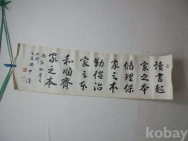 讀書起
家之本
循理保
家之本
勤俭治
家之本
和順齊
家之本
kobay